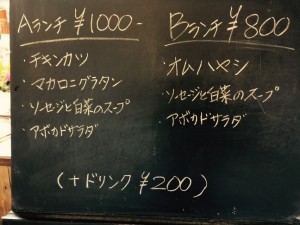 Aランチ ¥1000-
・チキンカツ
・マカロニグラタン
・ソーセージと白菜のスープ
・アボカドサラダ
Bランチ ¥800
・オムハヤシ
・ソーセージと白菜のスープ
・アボカドサラダ
(+ドリンク ¥200)